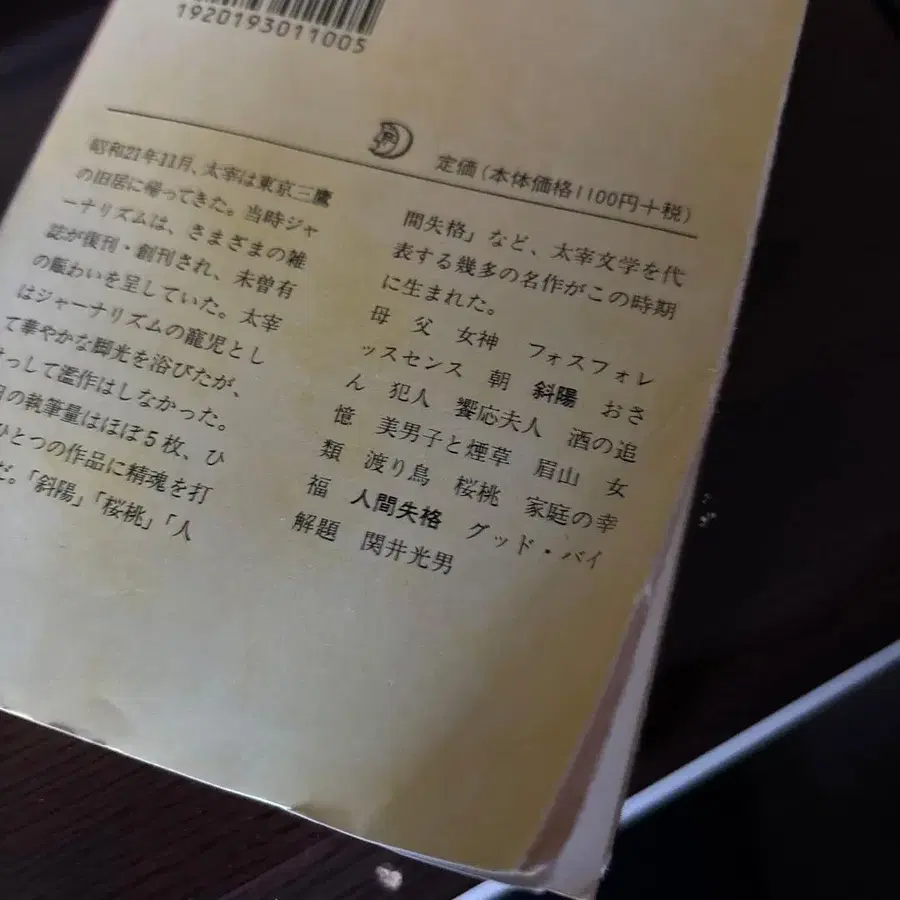 1920193011005
定価(本体価格1100円+税)
昭和21年11月、太宰は東京三鷹
の旧居に帰ってきた。当時ジャ
ーナリズムは、さまざまの雑
誌が復刊・創刊され、未曽有
の賑わいを呈していた。太宰
はジャーナリズムの寵児とし
て華やかな脚光を浴びたが、
っして濫作はしなかった。
の執筆量はほぼ5枚、ひ
ひとつの作品に精魂を打
だ。「斜陽」「桜桃」「人
間失格」など、太宰文学を代
表する幾多の名作がこの時期
に生まれた。
母 父 女神 フォスフォレ
ッスセンス 朝 斜陽 おさ
ん 犯人 饗応夫人 酒の追
憶 美男子と煙草 眉山 女
類 渡り鳥 桜桃 家庭の幸
福 人間失格 グッド・バイ
解題 関井光男